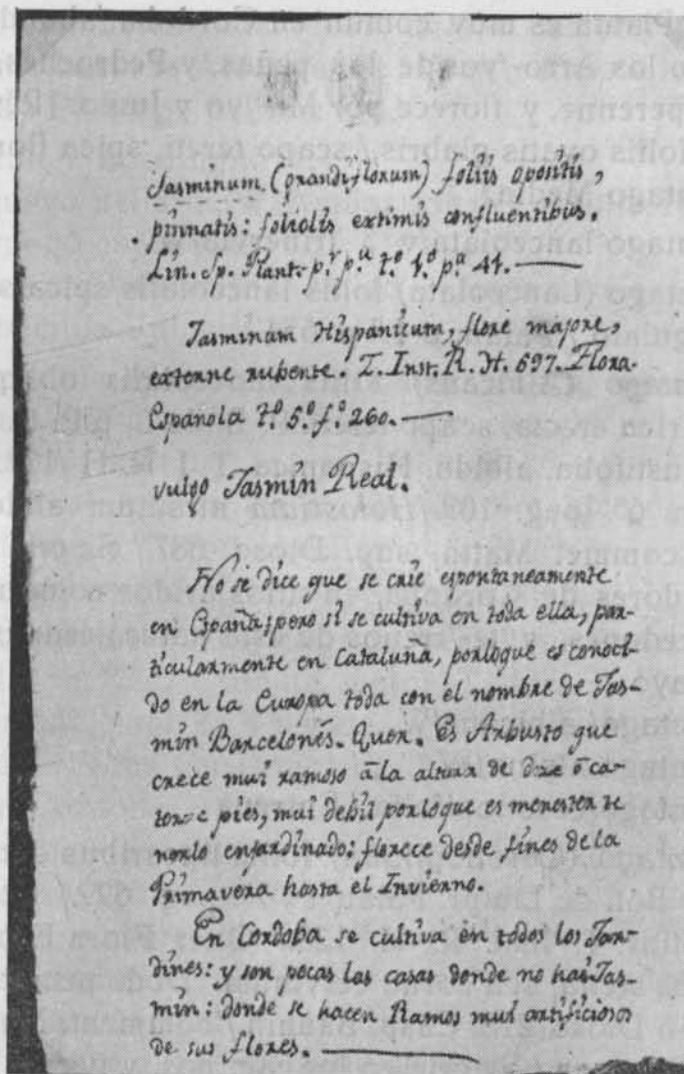 Jasminum (grandiflorum) foliis opositis,
pinnatis: foliolis extimis confluentibus.
Lin. Sp. Plant. p.r p.a t.o 1.o p.a 41.
Jasminum Hispanicum, flore majore,
externe rubente. T. Inst. R. H. 597. Flora
Española t.o 5.o f.o 260.
vulgo Jasmin Real.
No se dice que se crie espontaneamente
en España; pero si se cultiva en toda ella, par-
ticularmente en Cataluña, porloque es conoci-
do en la Europa toda con el nombre de Jas-
min Barcelonés. Quer. Es Arbusto que
crece mui ramoso á la altura de doze ó ca-
torze pies, mui debil porloque es menester te
nerlo enjardinado: florece desde fines de la
Primavera hasta el Invierno.
En Cordoba se cultiva en todos los Jar-
dines: y son pocas las casas donde no hai Jas-
min: donde se hacen Ramos mui artificiosos
de sus flores.